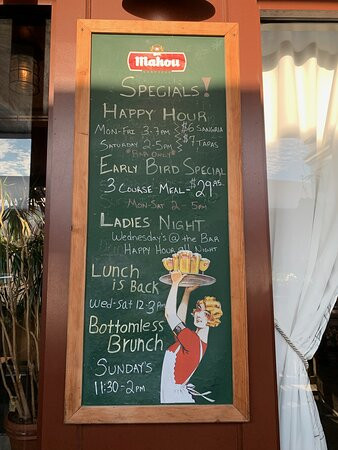 Mahou
SPECIALS!
HAPPY HOUR
MON-FRI 3-7PM $6 SANGRIA
SATURDAY 2-5PM $7 TAPAS
*BAR ONLY*
EARLY BIRD SPECIAL
3 COURSE MEAL-$29.95
MON-SAT 2-5PM
LADIES NIGHT
WEDNESDAY'S @ THE BAR
HAPPY HOUR all NIGHT
LUNCH
IS BACK
WED-SAT 12-3PM
BOTTOMLESS
BRUNCH
SUNDAY'S
11:30-2PM